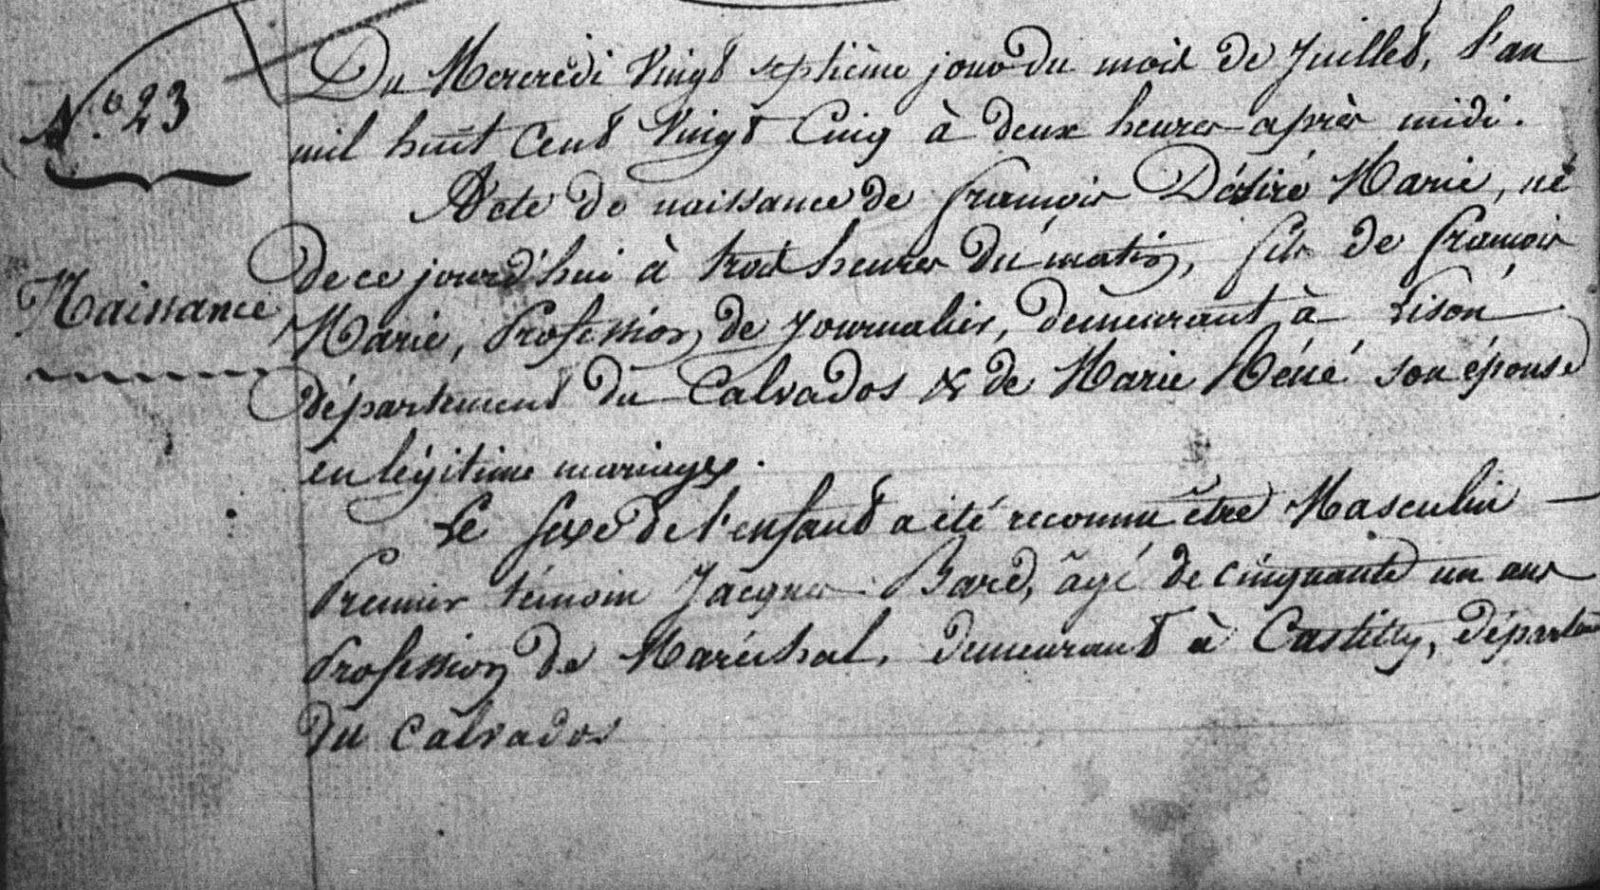 N.o 23
Du Mercredi Vingt septième jour du mois de Juillet, l'an
mil huit Cent Vingt Cinq à deux heures après midi.
Acte de naissance de françois Désiré Marie, né
Naissance
de ce jourd'hui à trois heures du matin, fils de françois
Marie, Profession de Journalier, demeurant à Lison
département du Calvados & de Marie Héné son épouse
en légitime mariage.
Le sexe de l'enfant a été reconnu être Masculin
Premier témoin Jacques Bard, âgé de cinquante un ans
Profession de Maréchal, demeurant à Castilly, départem
du Calvados